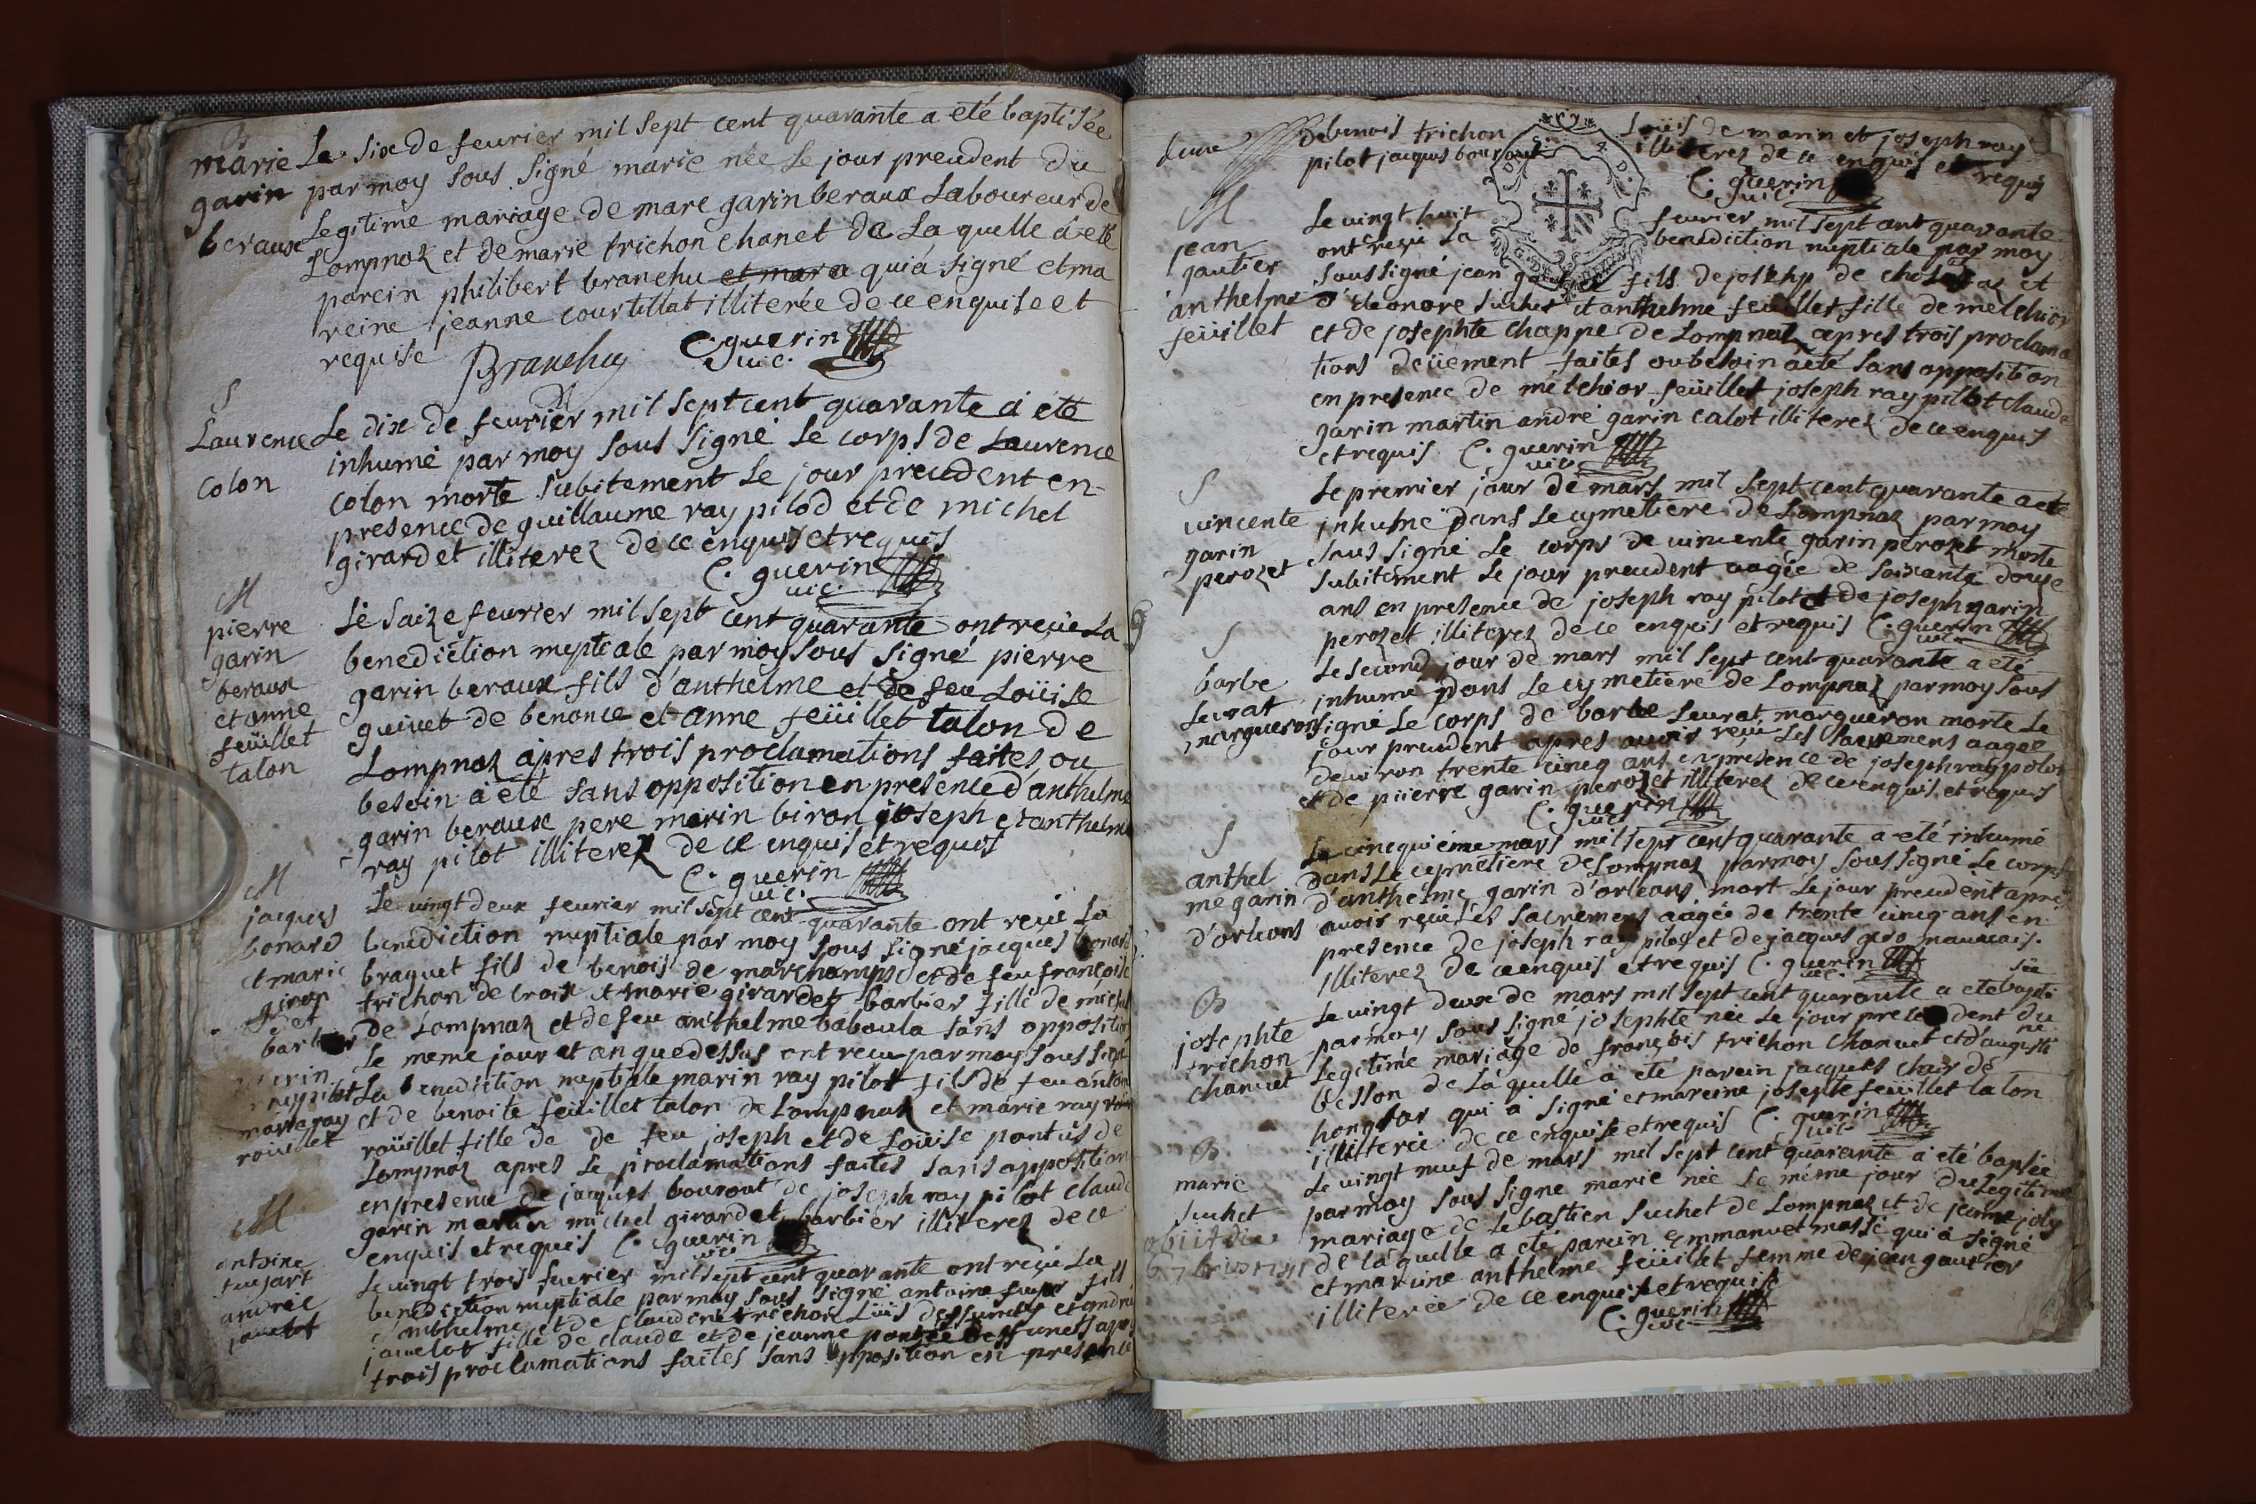 B
marie
garin
beraux
Le six de feurier mil sept cent quarante a eté baptisée
par moy sous signé marie née le jour precedent du
Legitime mariage de marc garin beraux Laboureur de
Lompnaz et de marie trichon chanet de la quelle á eté
parein philibert branchu et mar a qui á signé et ma
reine jeanne courtillat illiterée de ce enquise et
requise Branchu C. guerin
vic.
S
Laurence
colon
Le dix de feurier mil sept cent quarante á eté
inhumé par moy sous signé le corps de Laurence
colon morte subitement le jour precedent en
presence de guillaume ray pilod et de michel
girardet illiterez de ce enquis et requis
C. guerin
vic
M
pierre
garin
beraux
et anne
feüillet
talon
Le saize feurier mil sept cent quarante ont reçu la
benediction nuptiale par moy sous signé pierre
garin beraux fils d'anthelme et de feu Loüise
guinet de benonce et anne feüillet talon de
Lompnaz apres trois proclamations faites ou
besoin a eté sans opposition en presence d'anthelme
garin beraux pere marin biron joseph et anthelme
ray pilot illiterez de ce enquis et requis
C. guerin
vic.
M
jacques
bonard
et marie
girar
det
barbier
Le vingt deux feurier mil sept cent quarante ont reçu la
benediction nuptiale par moy sous signé jacques bonard
braguet fils de benois de marchamp et de feu françoise
trichon de croix et marie girardet barbier fille de michel
de Lompnaz et de feu anthelme baboula sans opposition
marie ray
roüillet
Le meme jour et an que dessus ont reçu par moy sous signé
La benediction nuptiale marin ray pilot fils de feu antoine
et de benoite feüillet talon de Lompnaz et marie ray
roüillet fille de de feu joseph et de Loüise pontus de
Lompnaz apres le proclamations faites sans opposition
en presence de jacques bouront de joseph ray pilot claude
garin martin michel girardet barbier illiterez de ce
enquis et requis C. guerin
vic
M
antoine
andrée
Le vingt trois feurier mil sept cent quarante ont reçu la
benediction nuptiale par moy sous signé antoine fils
d'anthelme et de claudine trichon Loüis deffuncts et andrée
fille de claude et de jeanne deffuncts apres
trois proclamations faites sans opposition en presence
de benois trichon Loüis de marin et joseph ray
pilot jacques bouront illiterez de ce enquis et requis
C. guerin
vic
M
jean
gautier
anthelme
feüillet
Le vingt huit feurier mil sept cent quarante
ont reçu La benediction nuptiale par moy
sous signé jean gautier fils de joseph de et
d'eleonore suchet et anthelme feüillet fille de melchior
et de josephte chappe de Lompnaz apres trois proclama
tions deüement faites ou besoin a eté sans opposition
en presence de melchior feüillet joseph ray pilot claude
garin martin andré garin calot illiterez de ce enquis
et requis C. guerin
vic
S
vincente
garin
perozet
Le premier jour de mars mil sept cent quarante a eté
inhumé dans le cymetiere de Lompnaz par moy
sous signé le corps de vincente garin perozet morte
subitement le jour precedent aagée de soixante douze
ans en presence de joseph ray pilot et de joseph garin
perozet illiterez de ce enquis et requis C. guerin
vic
S
barbe
Leurat
margueron
Le second jour de mars mil sept cent quarante a eté
inhumé dans le cymetiere de Lompnaz par moy sous
signé le corps de barbe Leurat margueron morte le
jour precedent apres avoir reçu les sacremens aagée
denviron trente cinq ans en presence de joseph ray pilot
et de piierre garin perozet illiterez de ce enquis et requis
C. guerin
vic
S
anthel
me garin
d'orleans
Le cincquiéme mars mil sept cent quarante a eté inhumé
dans le cymetiere de Lompnaz par moy sous signé le corps
d'anthelme garin d'orleans mort le jour precedent apres
avoir reçu les sacremens aagée de trente cincq ans en
presence de joseph ray pilot et de jacques gro mauvais
illiterez de ce enquis et requis C. guerin
vic.
B
josephte
trichon
chanuet
Le vingt deux de mars mil sept cent quarante a eté bapti
sée
par moy sous signé josephte née le jour precedent du
Legitime mariage de françois trichon chanuet et d'augusti
ne
besson de la quelle a eté parein jacques chair de
qui a signé et mareine josepte feüillet talon
illiterée de ce enquise et requis C. guerin
vic
B
marie
suchet
Le vingt neuf de mars mil sept cent quarante a eté baptée
par moy sous signé marie née le même jour du Legitime
mariage de sebastien suchet de Lompnaz et de jeanne joly
de la quelle a eté parein emmanuel massé qui à signé
et mareine anthelme feüillet femme de jean gautier
illiterée de ce enquise et requise
C. guerin
vic